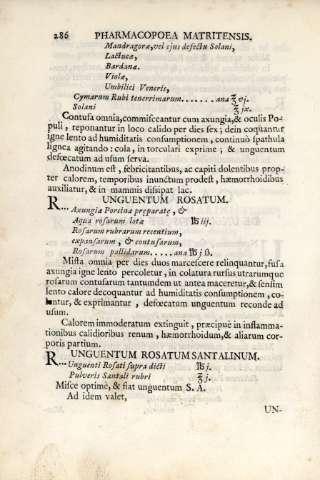 286 PHARMACOPOEA MATRITENSIS.
Mandragoræ, vel ejus defectu Solani,
Lactucæ,
Bardanæ.
Violæ,
Umbilici Veneris,
Cymarum Rubi tenerrimarum.......ana ℥ ej.
Solani ℥ jx.
Contusa omnia, commisceantur cum axungia, & oculis Po-
puli, reponantur in loco calido per dies sex; dein coquantur
igne lento ad humiditatis consumptionem, continuò spathula
lignea agitando: cola, in torculari exprime; & unguentum
defœcatum ad usum serva.
Anodinum est, febricitantibus, ac capiti dolentibus prop-
ter calorem, temporibus inunctum prodest, hæmorrhoidibus
auxiliatur, & in mammis dissipat lac.
UNGUENTUM ROSATUM.
R.... Axungiæ Porcinæ præparatæ, &
Aqua rosarum lotæ ℔ iij.
Rosarum rubrarum recentium,
expansarum, & contusarum,
Rosarum pallidarum.....ana ℔ j ß.
Mista omnia per dies duos marcescere relinquantur, fusa
axungia igne lento percoletur, in colatura rursus utrarumque
rosarum contusarum tantundem ut antea maceretur, & sensim
lento calore decoquantur ad humiditatis consumptionem, co-
lantur, & exprimantur, defœcatum unguentum reconde ad
usum.
Calorem immoderatum extinguit, præcipuè in inflamma-
tionibus calidioribus renum, hæmorrhoidum, & aliarum cor-
poris partium.
UNGUENTUM ROSATUM SANTALINUM.
R.... Unguenti Rosati supra dicti ℔ j.
Pulveris Santali rubri ℥ j.
Misce optimè, & fiat unguentum S. A.
Ad idem valet,
UN-